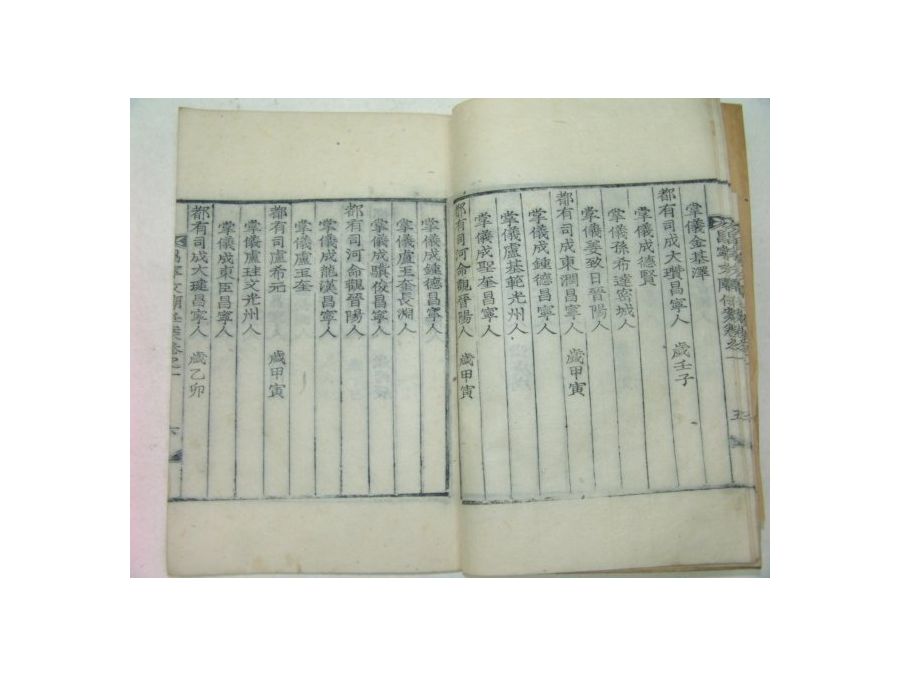 掌儀金基澤
都有司成大瓚昌寧人 歲壬子
掌儀成德賢
掌儀孫希達密城人
掌儀姜致日晉陽人
都有司成東澗昌寧人 歲甲寅
掌儀成鍾德昌寧人
掌儀盧基範光州人
掌儀成聖奎昌寧人
都有司河命觀晉陽人 歲甲寅
掌儀成鍾德昌寧人
掌儀盧玉奎長淵人
掌儀成驥俊昌寧人
都有司河命觀晉陽人
掌儀成龍漢昌寧人
掌儀盧玉奎
都有司盧希元 歲甲寅
掌儀盧珪文光州人
掌儀成東臣昌寧人
都有司成大璡昌寧人 歲乙卯
六